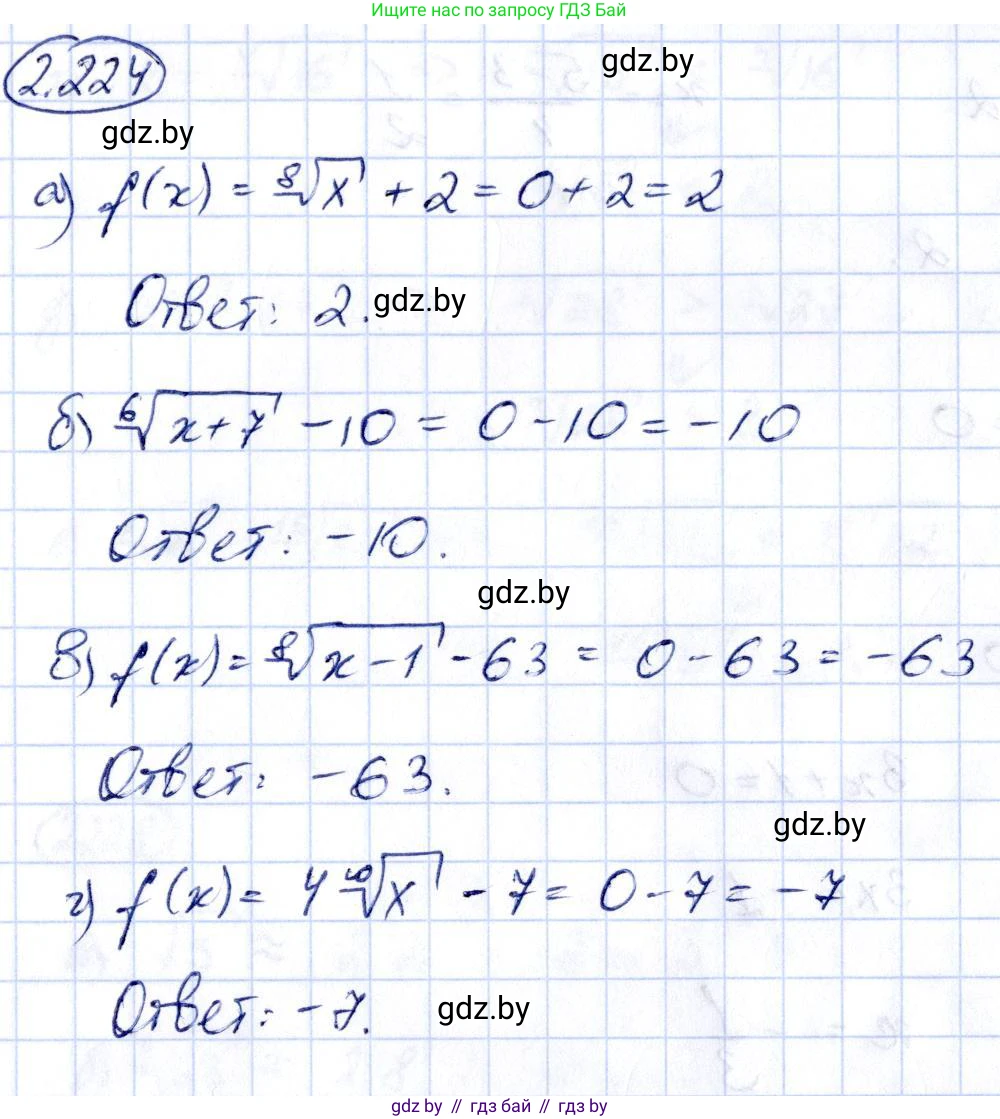 Ищите нас по запросу ГДЗ Бай
2.224
gdz.by
gdz.by
а) f(x) = ⁸√x + 2 = 0 + 2 = 2
Ответ: 2.
gdz.by
б) ⁶√(x+7) - 10 = 0 - 10 = -10
Ответ: -10.
gdz.by
в) f(x) = ⁸√(x-1) - 63 = 0 - 63 = -63
Ответ: -63.
gdz.by
г) f(x) = 4 ¹⁰√x - 7 = 0 - 7 = -7
Ответ: -7.
gdz.by
gdz.by // гдз бай // gdz.by